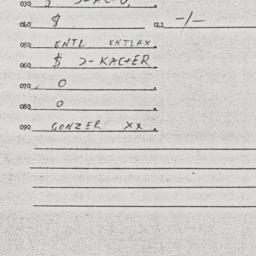 030 $
040 $ 041 -/-
050 ENTL ENTLAX
060 $ D-KACTER
070 0
080 0
090 GONZER XX